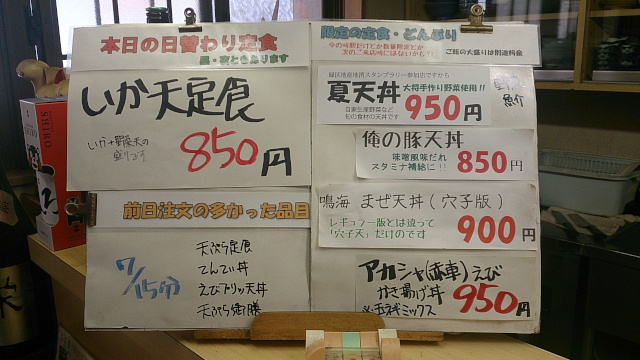 本日の日替わり定食
昼・夜ともあります
いか天定食
850円
前日注文の多かった品目
7/15分
天ぷら定食
てんてい丼
えびプリッ天丼
天ぷら御膳
限定の定食・どんぶり
今の時期だけとか数量限定とか
次のご来店時にはないかも!!
ご飯の大盛りは別途料金
緑区地産地消スタンプラリー参加店ですから
夏天丼
大将手作り野菜使用!!
自家生産野菜など
旬の食材の天丼です
950円
魚介
俺の豚天丼
味噌風味だれ
スタミナ補給に!!
850円
鳴海 まぜ天丼(穴子版)
レギュラー版とは違って
「穴子天」だけのです
900円
アカシャ(赤車)えび
かき揚げ丼
玉ネギミックス
950円
SHIRO